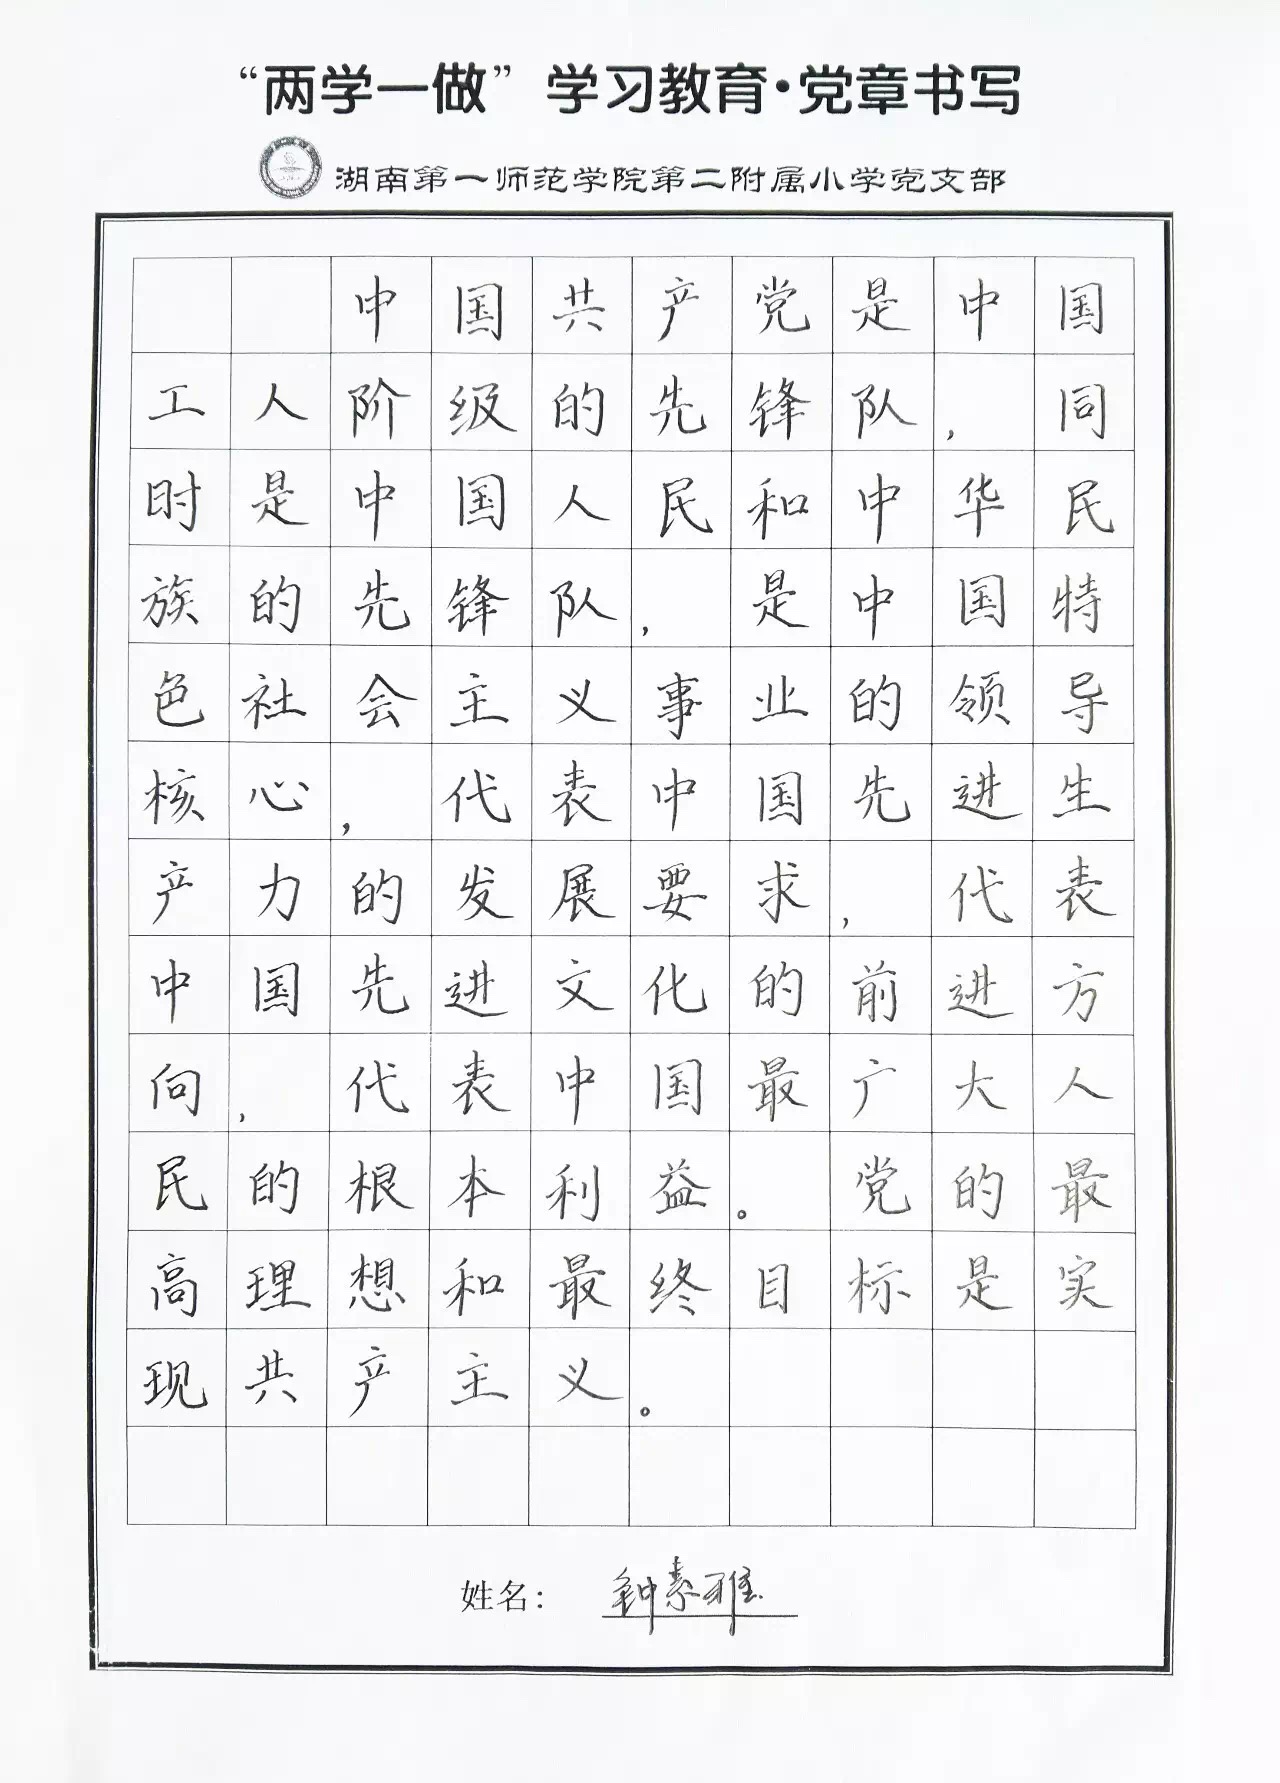 “两学一做”学习教育·党章书写
湖南第一师范学院第二附属小学党支部
中国共产党是中国
工人阶级的先锋队，同
时是中国人民和中华民
族的先锋队，是中国特
色社会主义事业的领导
核心，代表中国先进生
产力的发展要求，代表
中国先进文化的前进方
向，代表中国最广大人
民的根本利益。党的最
高理想和最终目标是实
现共产主义。
姓名：钟素雅